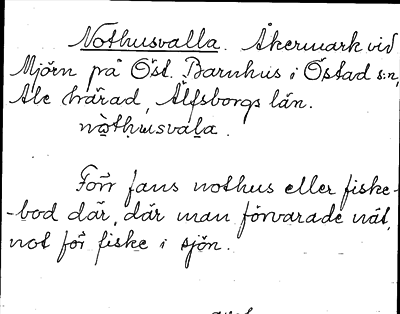 Nothusvalla. Åkermark vid
Mjörn på Öst. Barnhus i Östad s:n,
Ale härad, Älfsborgs län.
nòthusvala.
Förr fans nothus eller fiske-
-bod där, där man förvarade nät,
not för fiske i sjön.